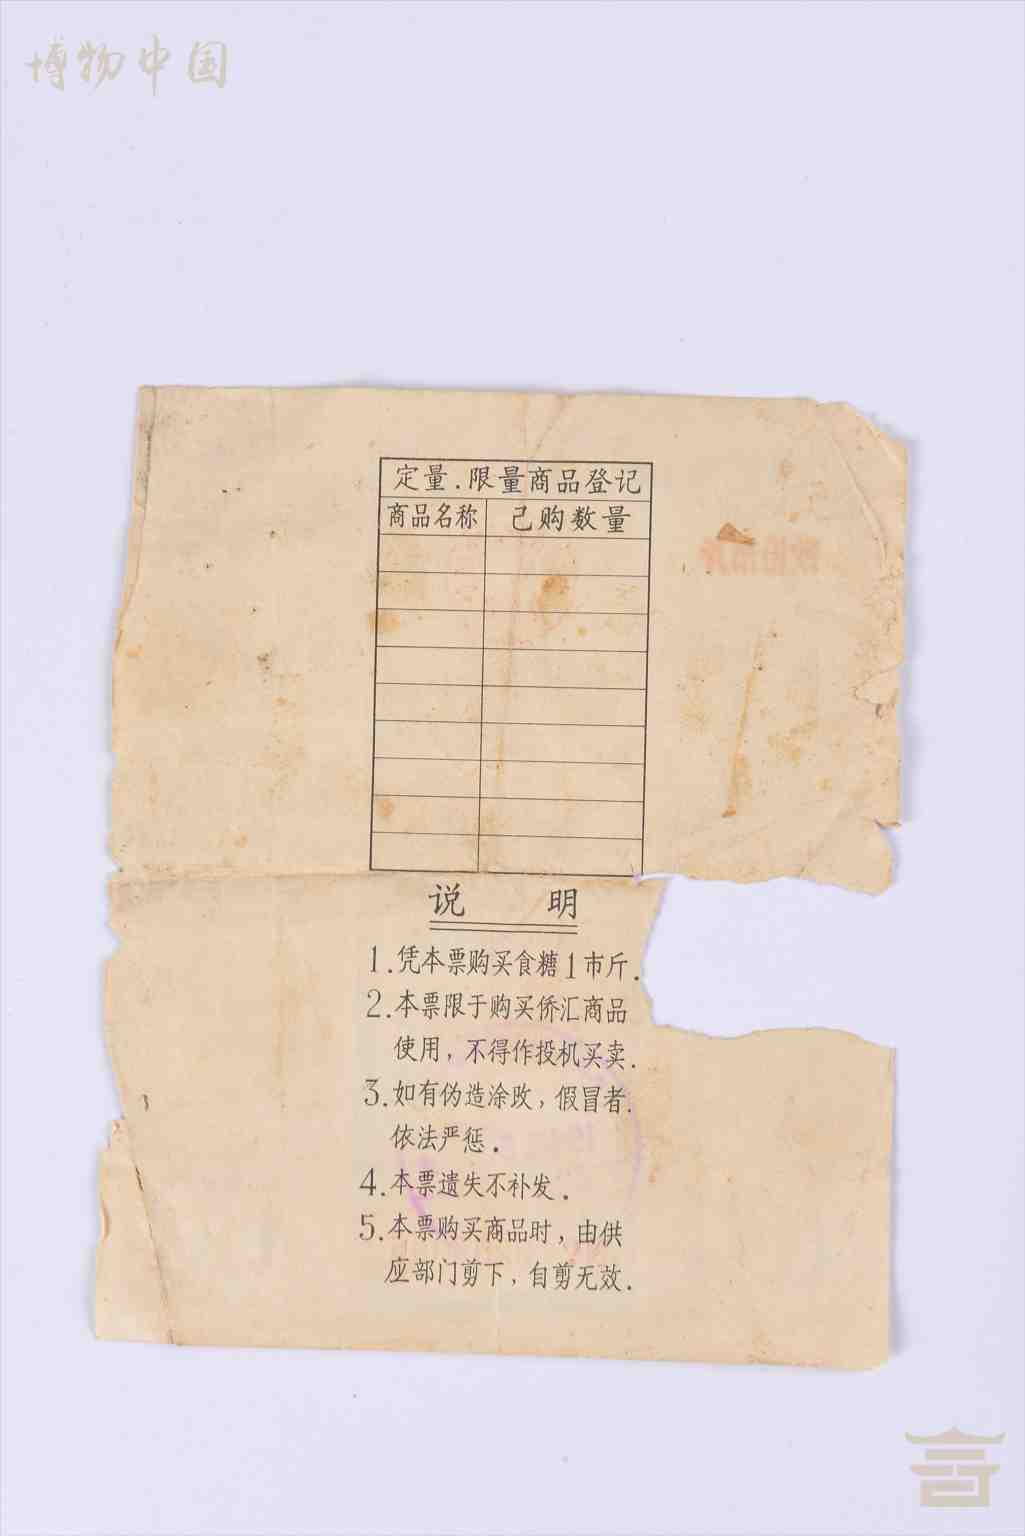 博物中国
定量.限量商品登记
商品名称 己购数量
说 明
1.凭本票购买食糖1市斤.
2.本票限于购买侨汇商品
使用,不得作投机买卖.
3.如有伪造涂改,假冒者.
依法严惩.
4.本票遗失不补发.
5.本票购买商品时,由供
应部门剪下,自剪无效.